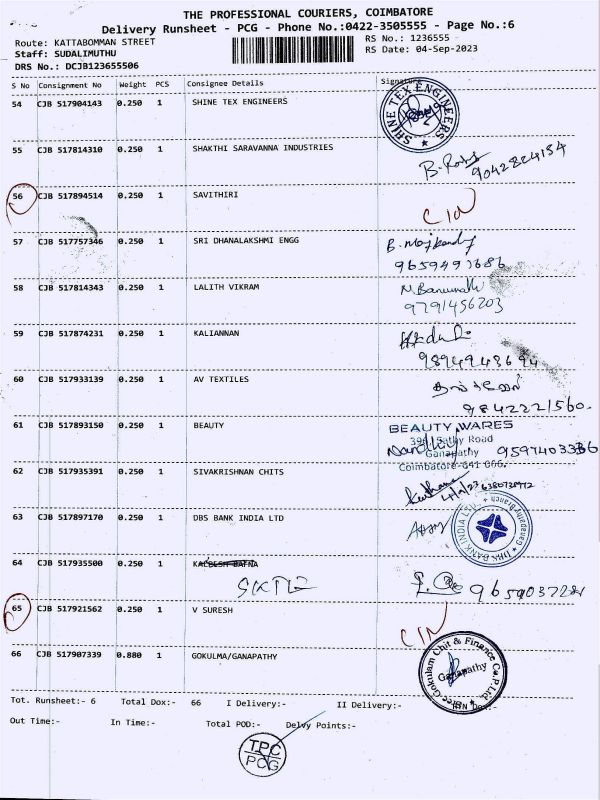 THE PROFESSIONAL COURIERS, COIMBATORE
Delivery Runsheet - PCG - Phone No.:0422-3505555 - Page No.:6
Route: KATTABOMMAN STREET
RS No.: 1236555
Staff: SUDALIMUTHU
RS Date: 04-Sep-2023
DRS No.: DCJB123655506
S No Consignment No Weight PCS Consignee Details Signature
54 CJB 517904143 0.250 1 SHINE TEX ENGINEERS
SHINE TEX ENGINEERS
55 CJB 517814310 0.250 1 SHAKTHI SARAVANNA INDUSTRIES
56 CJB 517894514 0.250 1 SAVITHIRI
57 CJB 517757346 0.250 1 SRI DHANALAKSHMI ENGG
9659497686
58 CJB 517814343 0.250 1 LALITH VIKRAM
9791456203
59 CJB 517874231 0.250 1 KALIANNAN
9894948694
60 CJB 517933139 0.250 1 AV TEXTILES
9842221560
61 CJB 517893150 0.250 1 BEAUTY
BEAUTY WARES
Sathy Road
Ganapathy
9597403336
Coimbatore-641 006.
62 CJB 517935391 0.250 1 SIVAKRISHNAN CHITS
63 CJB 517897170 0.250 1 DBS BANK INDIA LTD
64 CJB 517935500 0.250 1
65 CJB 517921562 0.250 1 V SURESH
66 CJB 517907339 0.880 1 GOKULMA/GANAPATHY
Sree Gokulam Chit & Finance Co.P.Ltd.
Ganapathy
Tot. Runsheet:- 6 Total Dox:- 66 I Delivery:- II Delivery:-
Out Time:- In Time:- Total POD:- Delvy Points:-
TPC
PCG